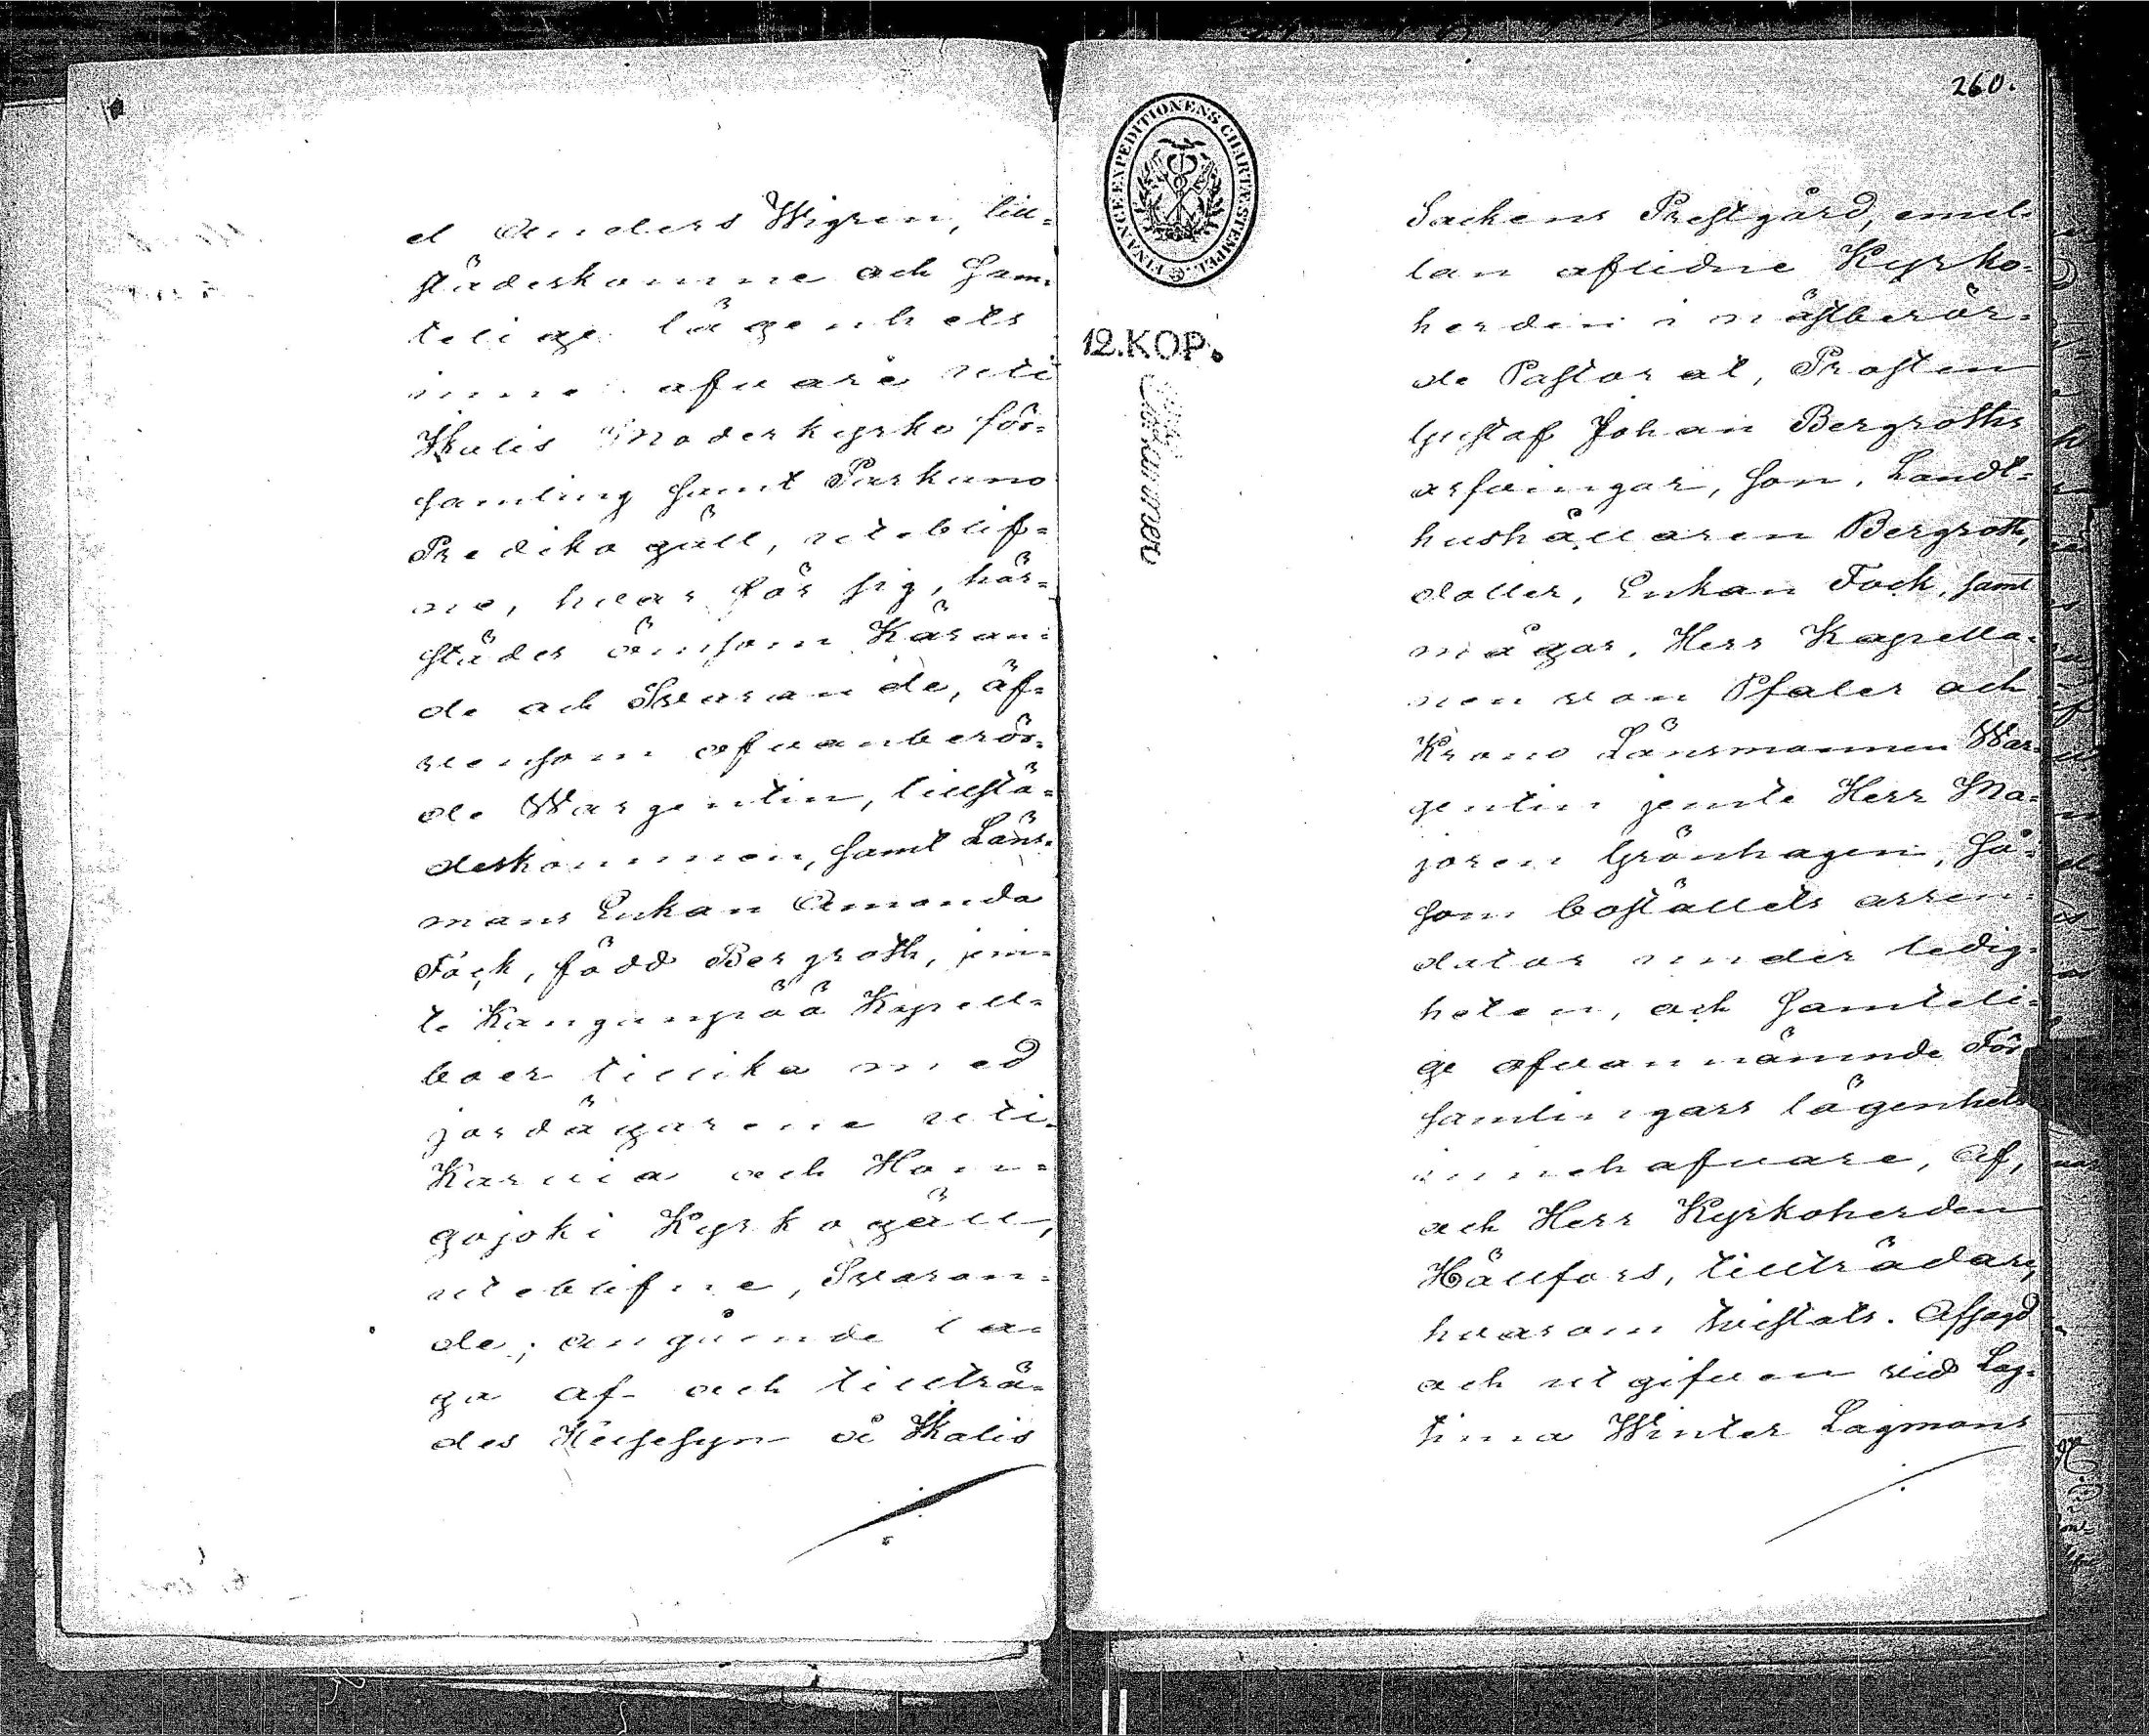 el Anders Wigren, till=
städeskomne och sam=
telige lägenhets
inne afvare uti
Ikalis Moderkyrko för=
samling samt Parkano
Predikogäll, uteblif=
ne, hvar för sig, här=
städes ömsom Käran=
de och Svarande, äf=
vensom ofvanberör=
de Wargentin, tillstä=
deskommen, samt Läns=
mans Enkan Amanda
Fock, född Bergroth, jem=
te Kangunpää Kapell=
boer tillika med
jordägarene uti
Karvia och Hon=
gojoki Kyrkogäll,
uteblifne, Svaran=
de; angående la=
ga af- och tillträ=
des Husesyn å Ikalis
260.
FINANCEEXPEDITIONENS CHARTÆSTEMPEL.
12.KOP.
Sockens Prestgård, emel=
lan aflidne Kyrko=
herden i nästberör=
de Pastorat, Prosten
Gustaf Johan Bergroths
arfvingar, son, Landt=
hushållaren Bergroth,
dotter, Enkan Fock, samt
mågar, Herr Kapella=
nen von Pfaler och
Krono Länsmannen War=
gentin jemte Herr Ma=
joren Grönhagen, så=
som boställets arren=
dator under ledig=
heten, och samteli=
ge ofvannämnde För
samlingars lägenhets
innehafvare, af,
och Herr Kyrkoherden
Hällfors, tillträdare,
hvarom twistats. Afsagd
och utgifven vid Lag=
tima Winter Lagmans